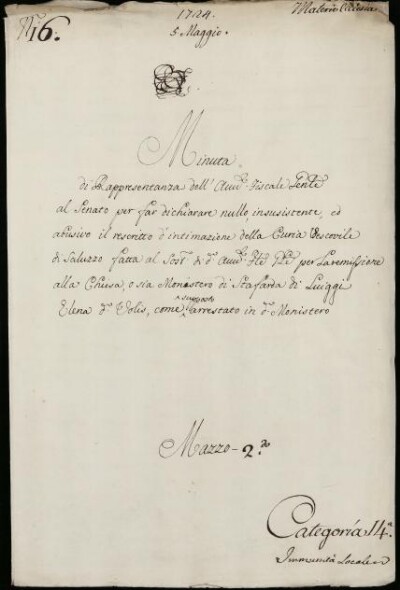 N.º 16.
1724.
5 Maggio.
Materie
Minuta
di Rappresentanza dell' Avv.º Fiscale Gen.le
al Senato per far dichiarare nullo, insusistente, ed
abusivo il rescritto d'intimazione della Curia Vescovile
di Saluzzo fatta al Sost.º di d.º Avv.º Gle per la remissione
alla Chiesa, o sia Monistero di Stafarda di Luiggi
Elena d.º Volis, come supposto arrestato in d.º Monistero
Mazzo - 2.do
Categoria 14.a
Immunità Locale